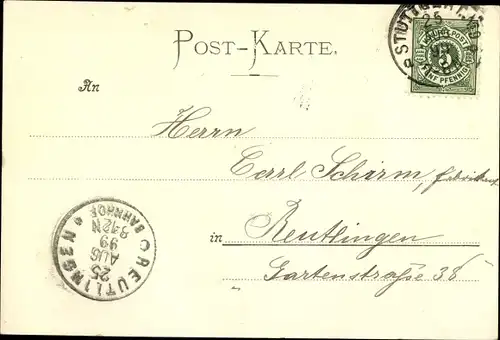 POST-KARTE.
STUTTGART
25
K.WÜRTT.POST
5
FÜNF PFENNIG
An
Herrn
Carl Schirm, Fabrikant
in Reutlingen
Gartenstraße 38
REUTLINGEN
25
AUG
99
8-12N
BAHNHOF